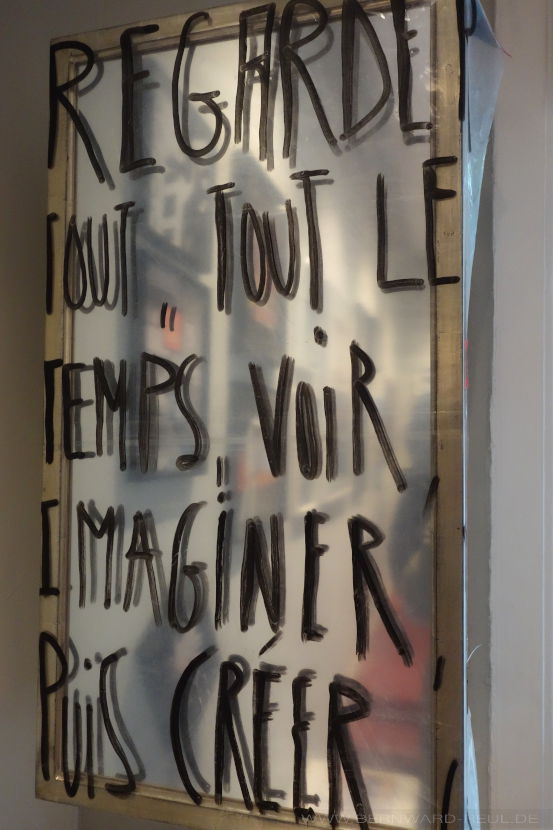 REGARDER
TOUT TOUT LE
TEMPS VOIR
IMAGINER
PUIS CRÉER
WWW.BERNWARD-REUL.DE